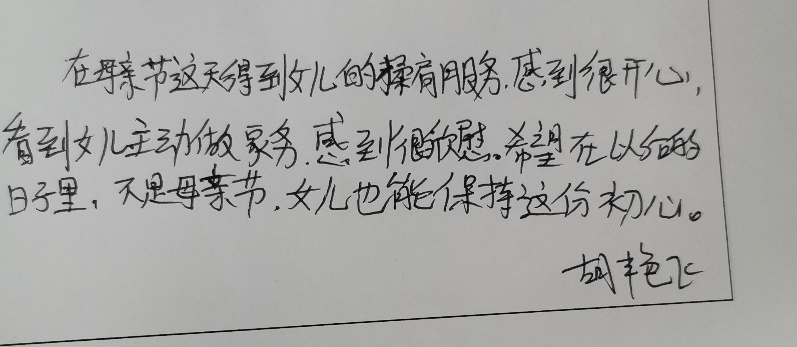 在母亲节这天得到女儿的揉肩服务,感到很开心,
看到女儿主动做家务,感到很欣慰。希望在以后的
日子里,不是母亲节,女儿也能保持这份初心。
胡艳飞